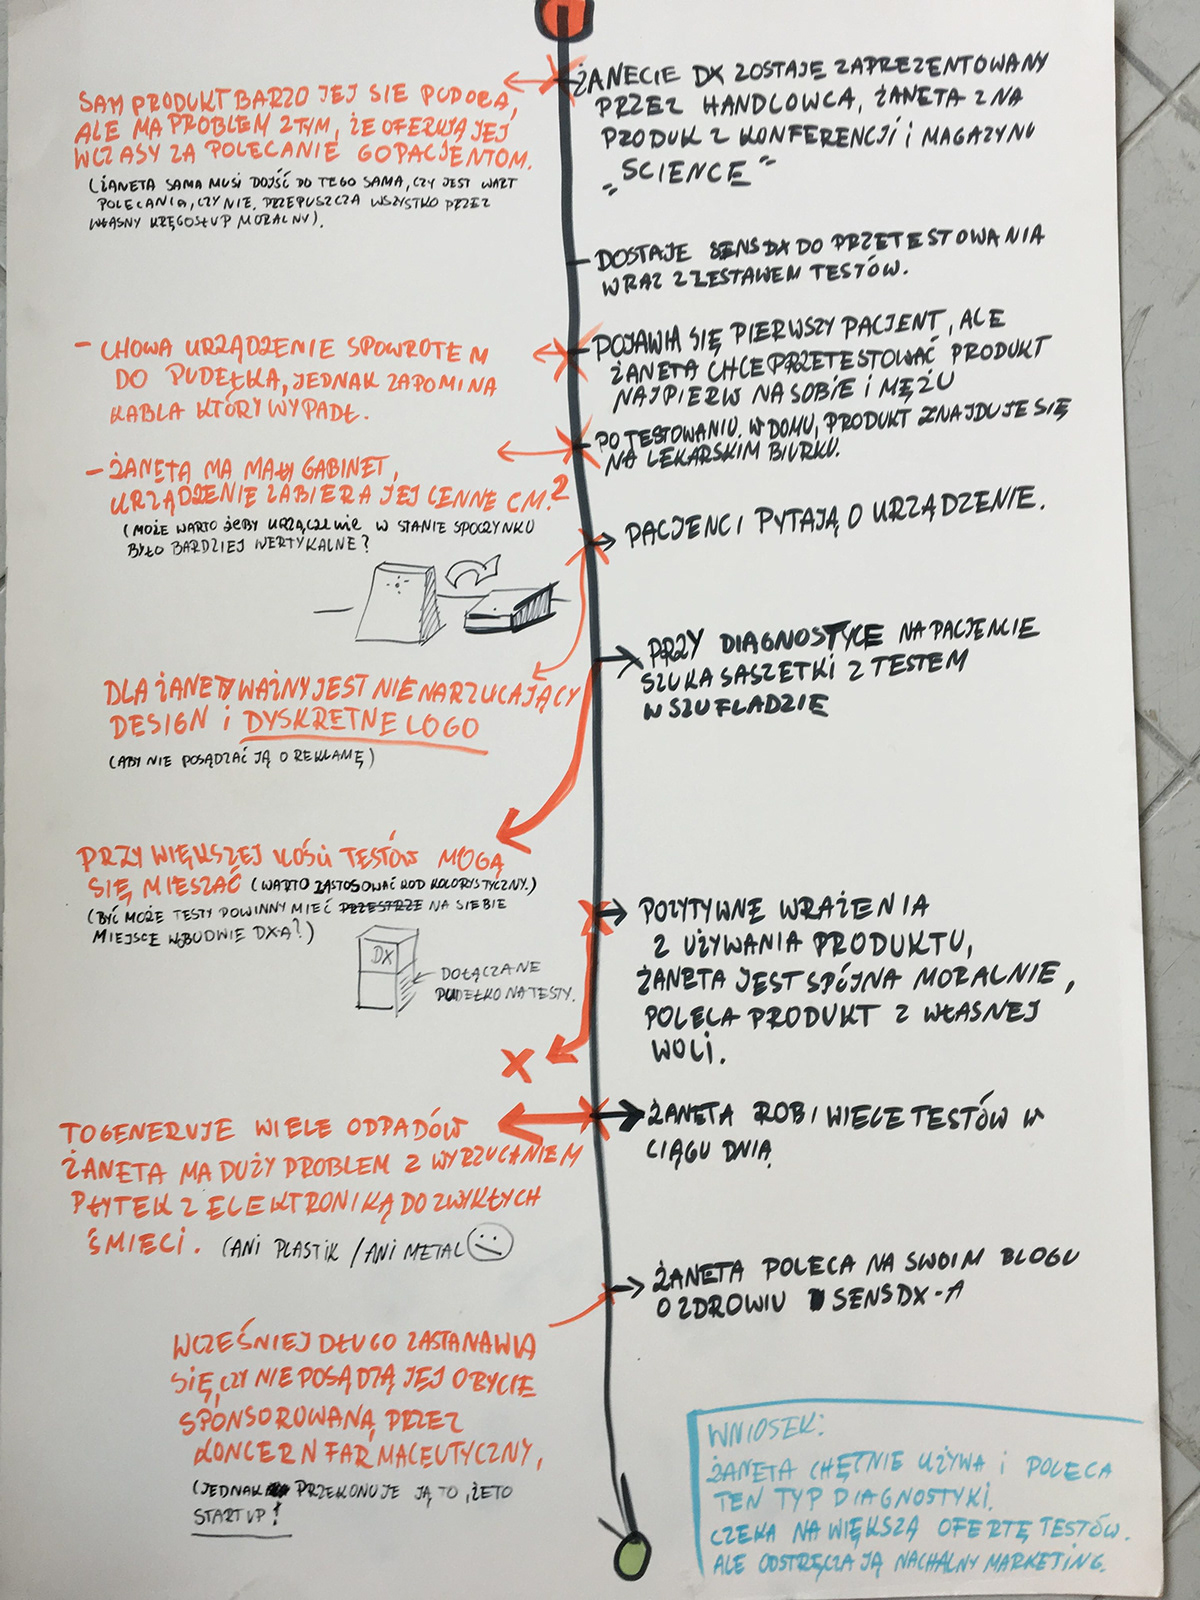 ŻANECIE DX ZOSTAJE ZAPREZENTOWANY
PRZEZ HANDLOWCA, ŻANETA ZNA
PRODUK Z KONFERENCJI i MAGAZYNU
„SCIENCE"
SAM PRODUKT BARZO JEJ SIE PODOBA,
ALE MA PROBLEM Z TYM, ŻE OFERUJĄ JEJ
WCZASY ZA POLECANIE GO PACJENTOM.
(ŻANETA SAMA MUSI DOJŚĆ DO TEGO SAMA, CZY JEST WART
POLECANIA, CZY NIE. PRZEPUSZCZA WSZYSTKO PRZEZ
WŁASNY KRĘGOSŁUP MORALNY).
DOSTAJE SENSDX DO PRZETESTOWANIA
WRAZ Z ZESTAWEM TESTÓW.
POJAWIA SIĘ PIERWSZY PACJENT, ALE
ŻANETA CHCE PRZETESTOWAĆ PRODUKT
NAJPIERW NA SOBIE I MĘŻU
- CHOWA URZĄDZENIE SPOWROTEM
DO PUDEŁKA, JEDNAK ZAPOMINA
KABLA KTÓRY WYPADŁ.
PO TESTOWANIU. W DOMU, PRODUKT ZNAJDUJE SIĘ
NA LEKARSKIM BIURKU.
- ŻANETA MA MAŁY GABINET,
URZĄDZENIE ZABIERA JEJ CENNE CM.²
(MOŻE WARTO ŻEBY URZĄDZENIE W STANIE SPOCZYNKU
BYŁO BARDZIEJ WERTYKALNE?
PACJENCI PYTAJĄ O URZĄDZENIE.
PRZY DIAGNOSTYCE NA PACJENCIE
SZUKA SASZETKI Z TESTEM
W SZUFLADZIE
DLA ŻANETY WAŻNY JEST NIENARZUCAJĄCY
DESIGN i DYSKRETNE LOGO
(ABY NIE POSĄDZAĆ JĄ O REKLAMĘ)
PRZY WIĘKSZEJ ILOŚCI TESTÓW MOGĄ
SIĘ MIESZAĆ (WARTO ZASTOSOWAĆ KOD KOLORYSTYCZNY.)
(BYĆ MOŻE TESTY POWINNY MIEĆ PRZESTRZE NA SIEBIE
MIEJSCE W BUDWIE DX-A?)
DX
DOŁĄCZANE
PUDEŁKO NA TESTY.
POZYTYWNE WRAŻENIA
Z UŻYWANIA PRODUKTU,
ŻANETA JEST SPÓJNA MORALNIE,
POLECA PRODUKT Z WŁASNEJ
WOLI.
X
ŻANETA ROBI WIELE TESTÓW W
CIĄGU DNIA
TO GENERUJE WIELE ODPADÓW
ŻANETA MA DUŻY PROBLEM Z WYRZUCANIEM
PŁYTEK Z ELEKTRONIKĄ DO ZWYKŁYCH
ŚMIECI. (ANI PLASTIK / ANI METAL
ŻANETA POLECA NA SWOIM BLOGU
O ZDROWIU SENSDX-A
WCZEŚNIEJ DŁUGO ZASTANAWIA
SIĘ, CZY NIE POSĄDZĄ JEJ O BYCIE
SPONSOROWANĄ PRZEZ
KONCERN FARMACEUTYCZNY,
(JEDNAK PRZEKONUJE JĄ TO, ŻE TO
STARTUP!
WNIOSEK:
ŻANETA CHĘTNIE UŻYWA i POLECA
TEN TYP DIAGNOSTYKI.
CZEKA NA WIĘKSZĄ OFERTĘ TESTÓW.
ALE ODSTRĘCZA JĄ NACHALNY MARKETING.